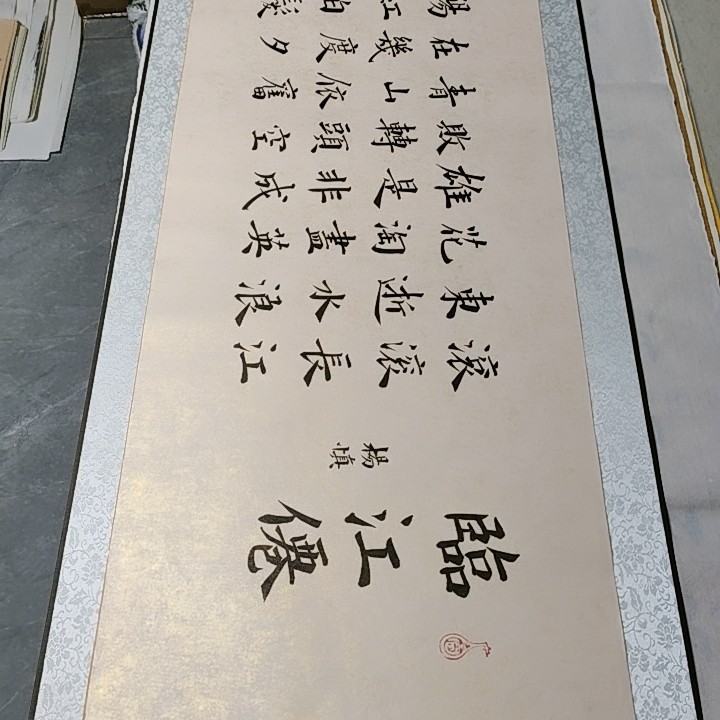 臨江僊
楊慎
滾滾長江
東逝水浪
花淘盡英
雄是非成
敗轉頭空
青山依舊
在幾度夕
陽紅白髮